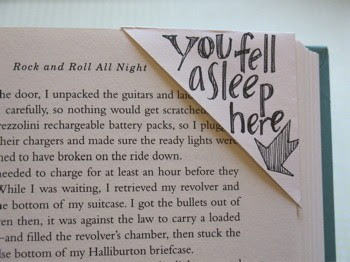 you fell
asleep
here
Rock and Roll All Night
he door, I unpacked the guitars and
carefully, so nothing would get scratched
ezzolini rechargeable battery packs, so I
heir chargers and made sure the ready lights were
ned to have broken on the ride down.
needed to charge for at least an hour before they
While I was waiting, I retrieved my revolver and
e bottom of my suitcase. I got the bullets out of
ven then, it was against the law to carry a loaded
—and filled the revolver's chamber, then stuck the
lse bottom of my Halliburton briefcase.